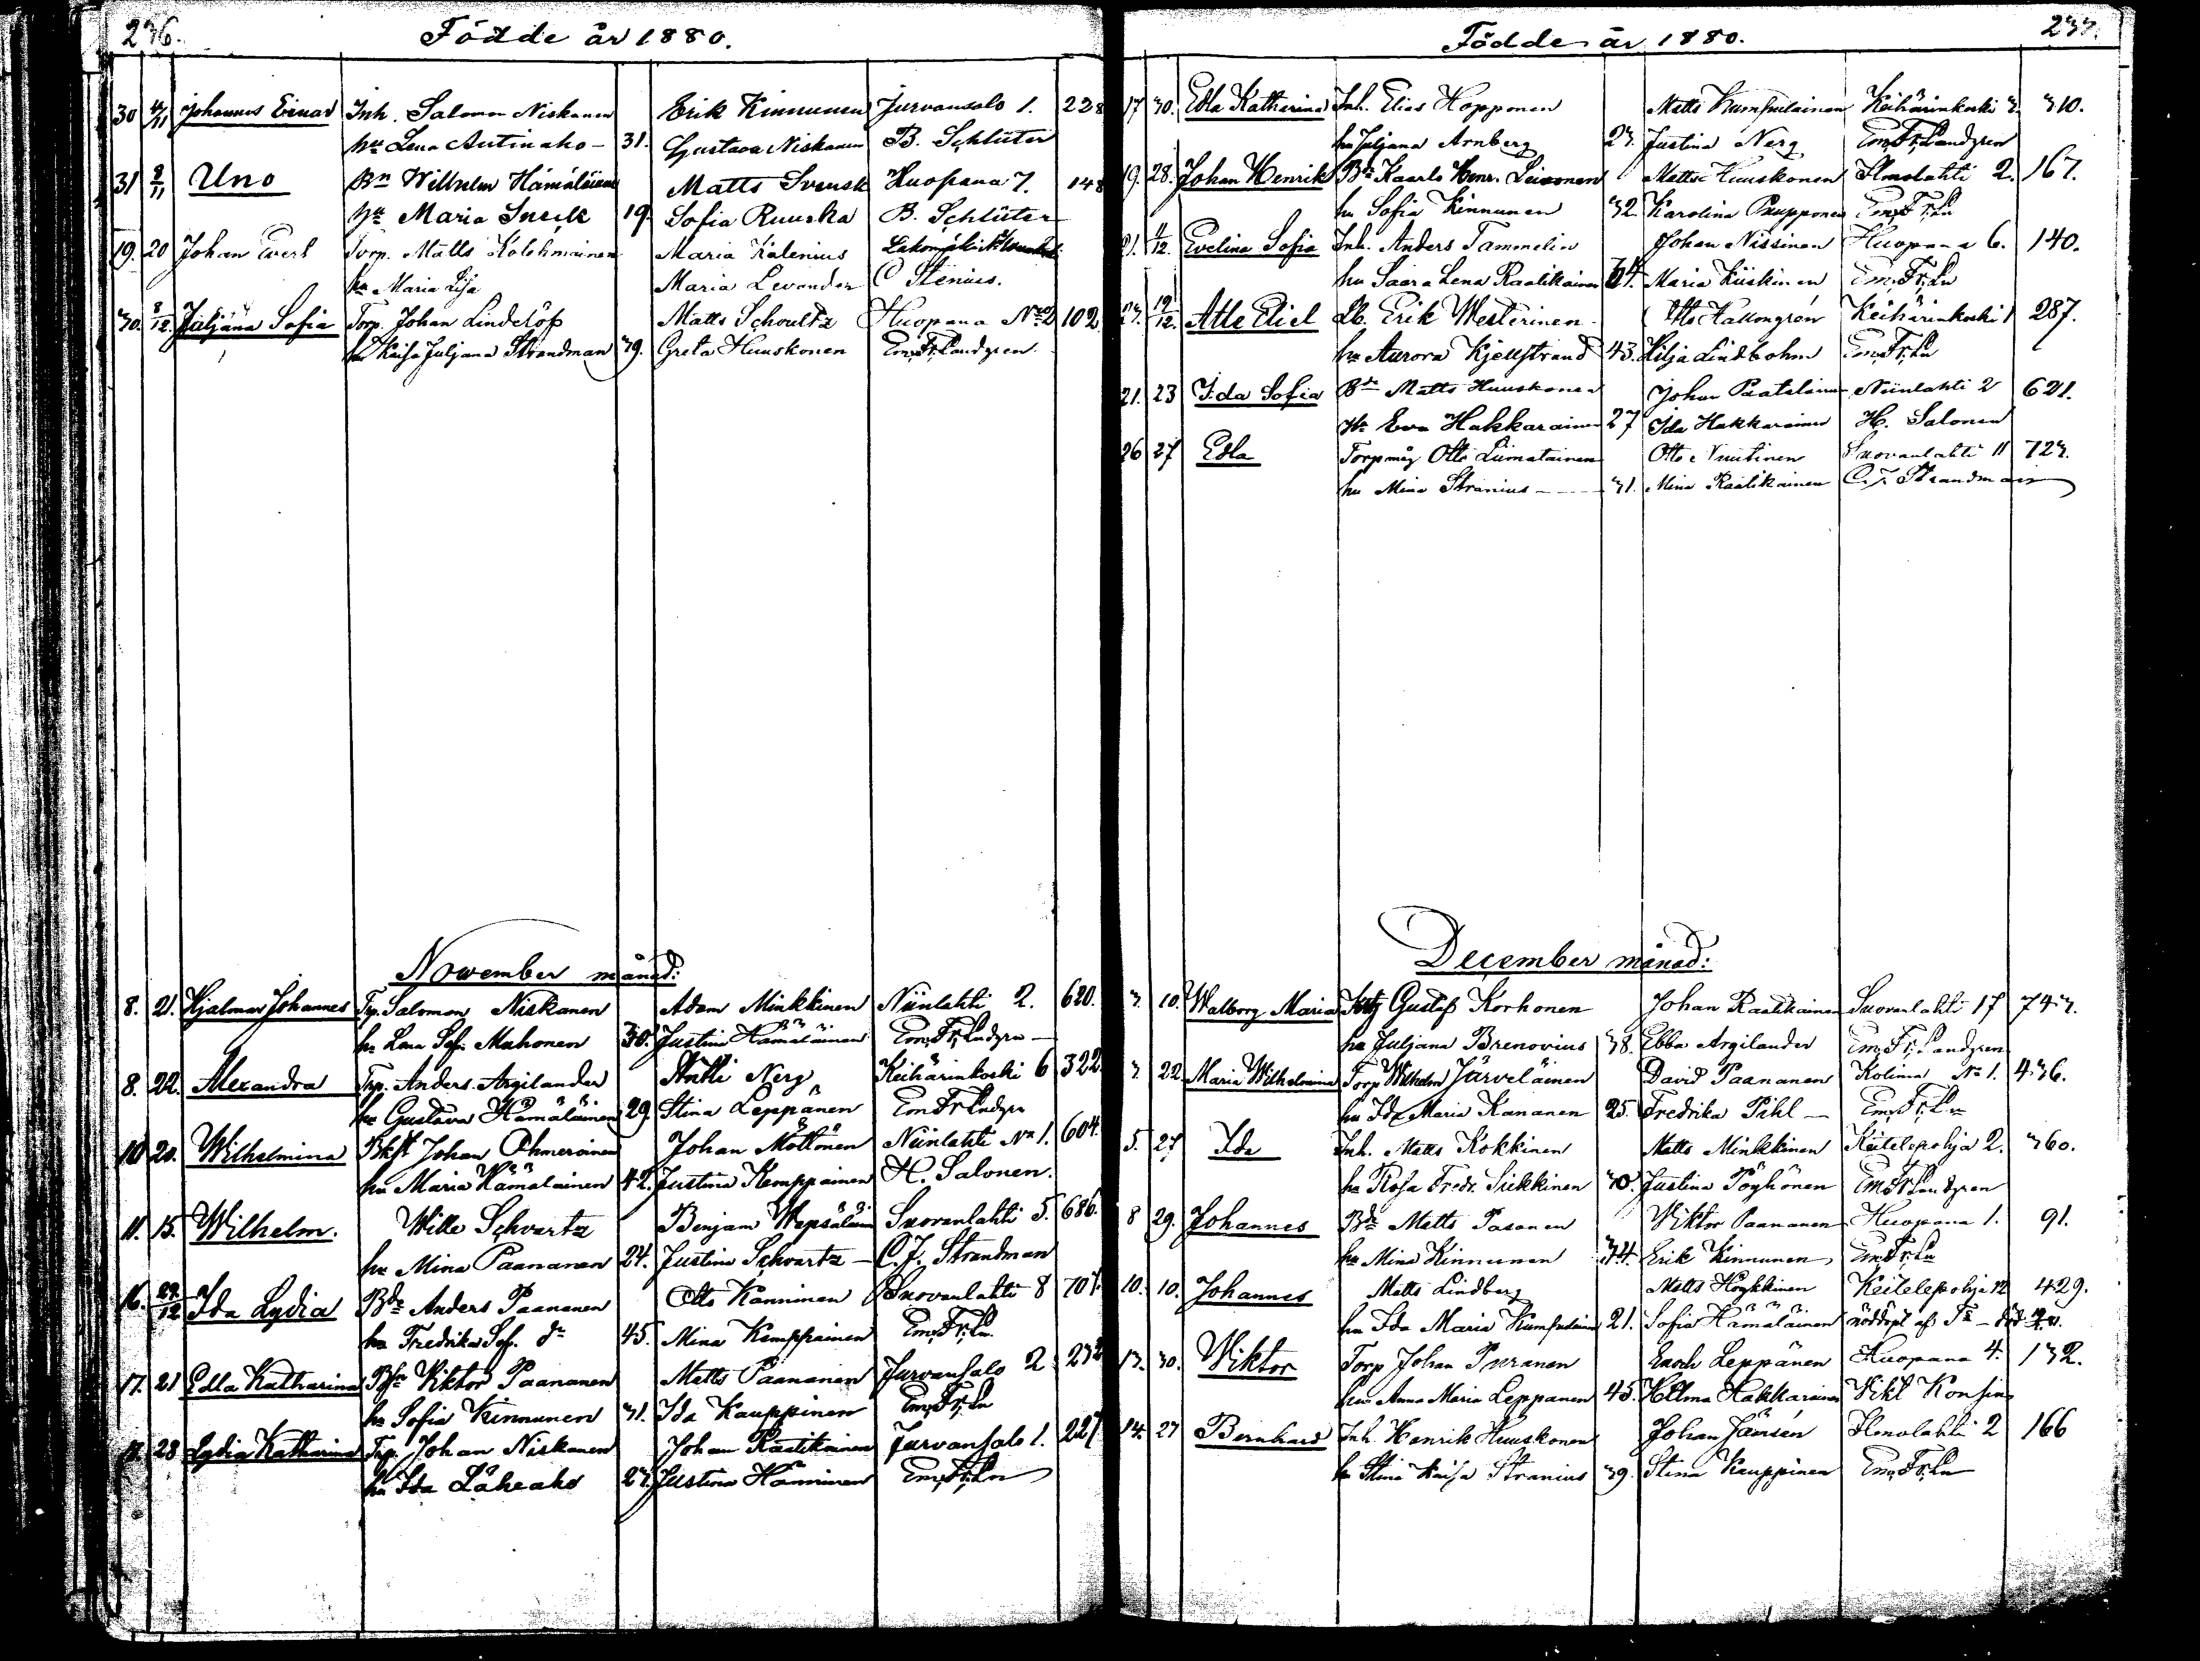 236.
Födde år 1880.
30 4/11 Johannes Einar Inh. Salomon Niskanen Erik Kinnunen Jurvansalo 1. 228
hu Lena Autinaho - 31. Gustava Niskanen B. Schlüter
31 8/11 Uno Bn Wilhelm Hämäläinen Matts Svensk Huopana 7. 148
hu Maria 19. Sofia Ruuska B. Schlüter
19. 20 Johan Evert Torp. Matts Kolehmainen Maria Kalenius
hu Maria Lisa Maria Levander C Stenius.
30. 8/12. Juljäna Sofia Torp. Johan Lindelöf Matts Schoultz Huopana No 2 102
hu Kaisa Juljana Strandman 39. Greta Huuskonen Em. Fr. Landgren.
November månad:
8. 21. Hjalmar Johannes Trp. Salomon Niskanen Adam Minkkinen Niinlahti 2. 620.
hu Lena Sof. Muhonen 30. Justina Hämäläinen Em. Fr. Lndgrn
8. 22. Alexandra Trp. Anders Argilander Antti Nerg Keihärinkoski 6 322
hu Gustava Hämäläinen 29. Stina Leppänen Em Fr Lndgrn
10 20. Wilhelmina Johan Ohmeroinen Johan Möttönen Niinlahti No 1. 604.
hu Maria Hämäläinen 42. Justina Kemppainen H. Salonen.
11. 15. Wilhelm. Wille Schvartz Benjam Wepsäläinen Suovanlahti 5. 686.
hu Mina Paananen 24. Justina Schvartz - C. F. Strandman
16. 29/12 Ida Lydia Bdn Anders Paananen Otto Kanninen Suovanlahti 8 707.
hu Fredrika Sof. dn 45. Mina Kemppainen Em. Fr. Ln
17. 21 Edla Katharina Viktor Paananen Matts Paananen Jurvansalo 2 232
hu Sofia Kinnunen 31. Ida Kauppinen Em. Fr. Ln
18. 28 Lydia Katharina Trp. Johan Niskanen Johan Raatikainen Jurvansalo 1. 227
hu Ida Läheaho 27. Justina Hänninen Em. Fr. Ln
237.
Födde år 1880.
17 30. Edla Katharina Inh. Elias Hopponen Matts Kumpulainen Keihärinkoski 3. 310.
hu Juljana Arnberg 23. Justina Nerg Em. Fr. Landgren
19. 28. Johan Henrik Bdn Kaarlo Henr. Leivonen Matts Huuskonen Ilmolahti 2. 167.
hu Sofia Kinnunen 32. Karolina Em. Fr. Ln
21. 4/12. Evelina Sofia Inh. Anders Tammelin Johan Nissinen Huopana 6. 140.
hu Saara Lena Raatikainen 34. Maria Kiiskinen Em. Fr. Ln
23. 19/12. Atle Eliel Erik Westerinen Keihärinkoski 1 287.
hu Aurora Kjellstrand 43. Hilja Lindbohm Em. Fr. Ln
21. 23 Ida Sofia Bdn Matts Huuskonen Johan Niinlahti 2 621.
hu Eva Hakkarainen 27 Ida Hakkarainen H. Salonen
26 27 Edla Torpmåg Otto Liimatainen Otto Nuutinen Suovanlahti 11 723.
hu Mina Stranius - 31. Mina Raatikainen C. F. Strandman
December månad:
3. 10. Walborg Maria Gustaf Korhonen Johan Raatikainen Suovanlahti 17 743.
hu Juljana Brenovius 38. Ebba Argilander Em. Fr. Landgren
3. 22. Maria Wilhelmina Torp Wilhelm Järveläinen David Paananen Kolima No 1. 436.
hu Ida Maria Kananen 25. Fredrika Pihl - Em. Fr. Ln
5. 27 Ida Inh. Matts Kokkinen Matts Minkkinen Keitelepohja 2. 360.
hu Rosa Fredr. Siekkinen 30. Justina Pöyhönen Em Fr Landgren
8 29. Johannes Bdn Matts Pasanen Viktor Paananen Huopana 1. 91.
hu Mina Kinnunen 34. Erik Kinnunen Em. Fr. Ln
10. 10. Johannes Matts Lindberg Matts Hoykkinen Keitelepohja 12 429.
hu Ida Maria Kumpulainen 21. Sofia Hämäläinen nöddöpt af
13. 30. Viktor Torp Johan Puranen Enoch Leppänen Huopana 4. 132.
hu Anna Maria Leppänen 45. Helma Hakkarainen Vikt Konsin
14. 27 Bernhard Inh. Henrik Huuskonen Johan Jänsén Ilmolahti 2 166
hu Stina Kaisa Stranius 39. Stina Kauppinen Em. Fr. Ln